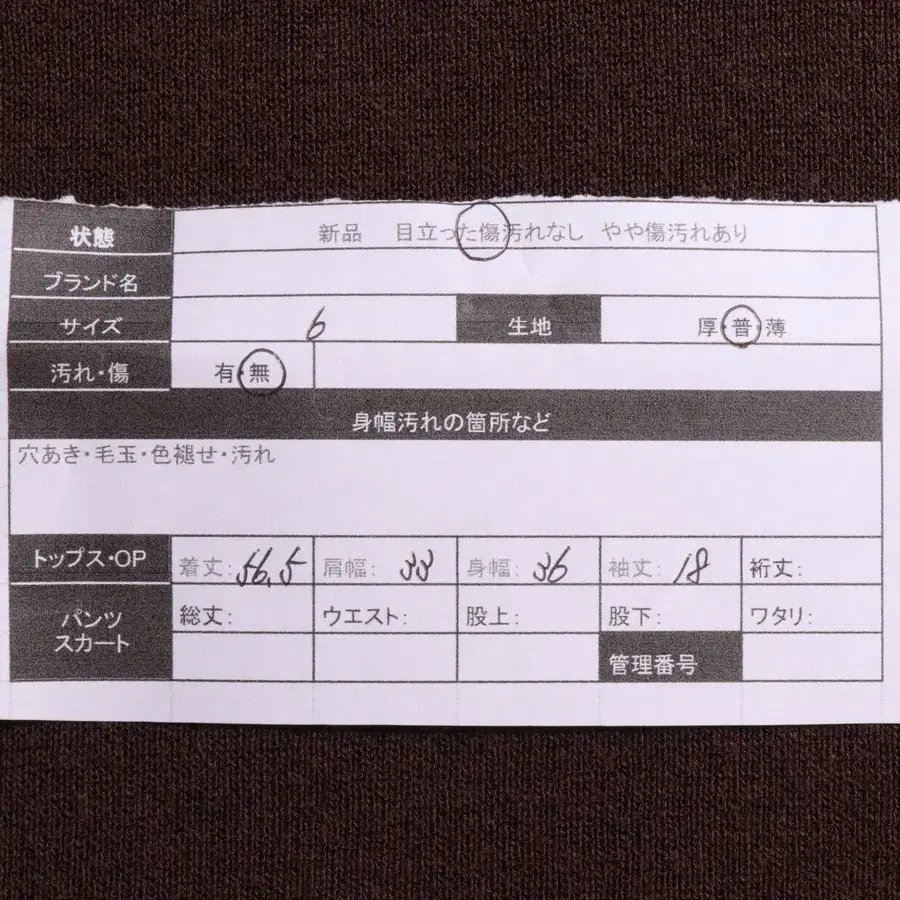 状態 新品 目立った傷汚れなし やや傷汚れあり
ブランド名
サイズ 6 生地 厚・普・薄
汚れ・傷 有・無
身幅汚れの箇所など
穴あき・毛玉・色褪せ・汚れ
トップス・OP 着丈: 56.5 肩幅: 33 身幅: 36 袖丈: 18 裄丈:
パンツ スカート 総丈: ウエスト: 股上: 股下: ワタリ:
管理番号